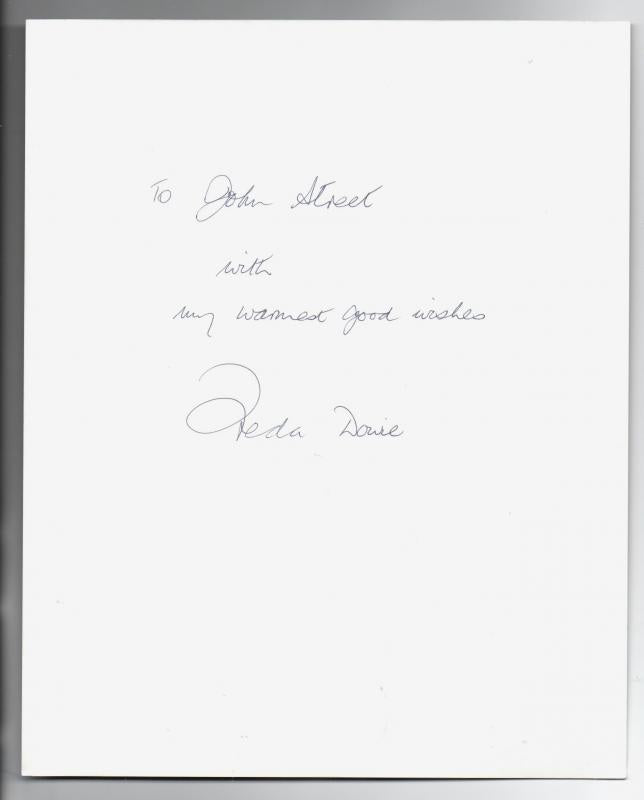 To John Street
with
my warmest good wishes
Freda Dowie